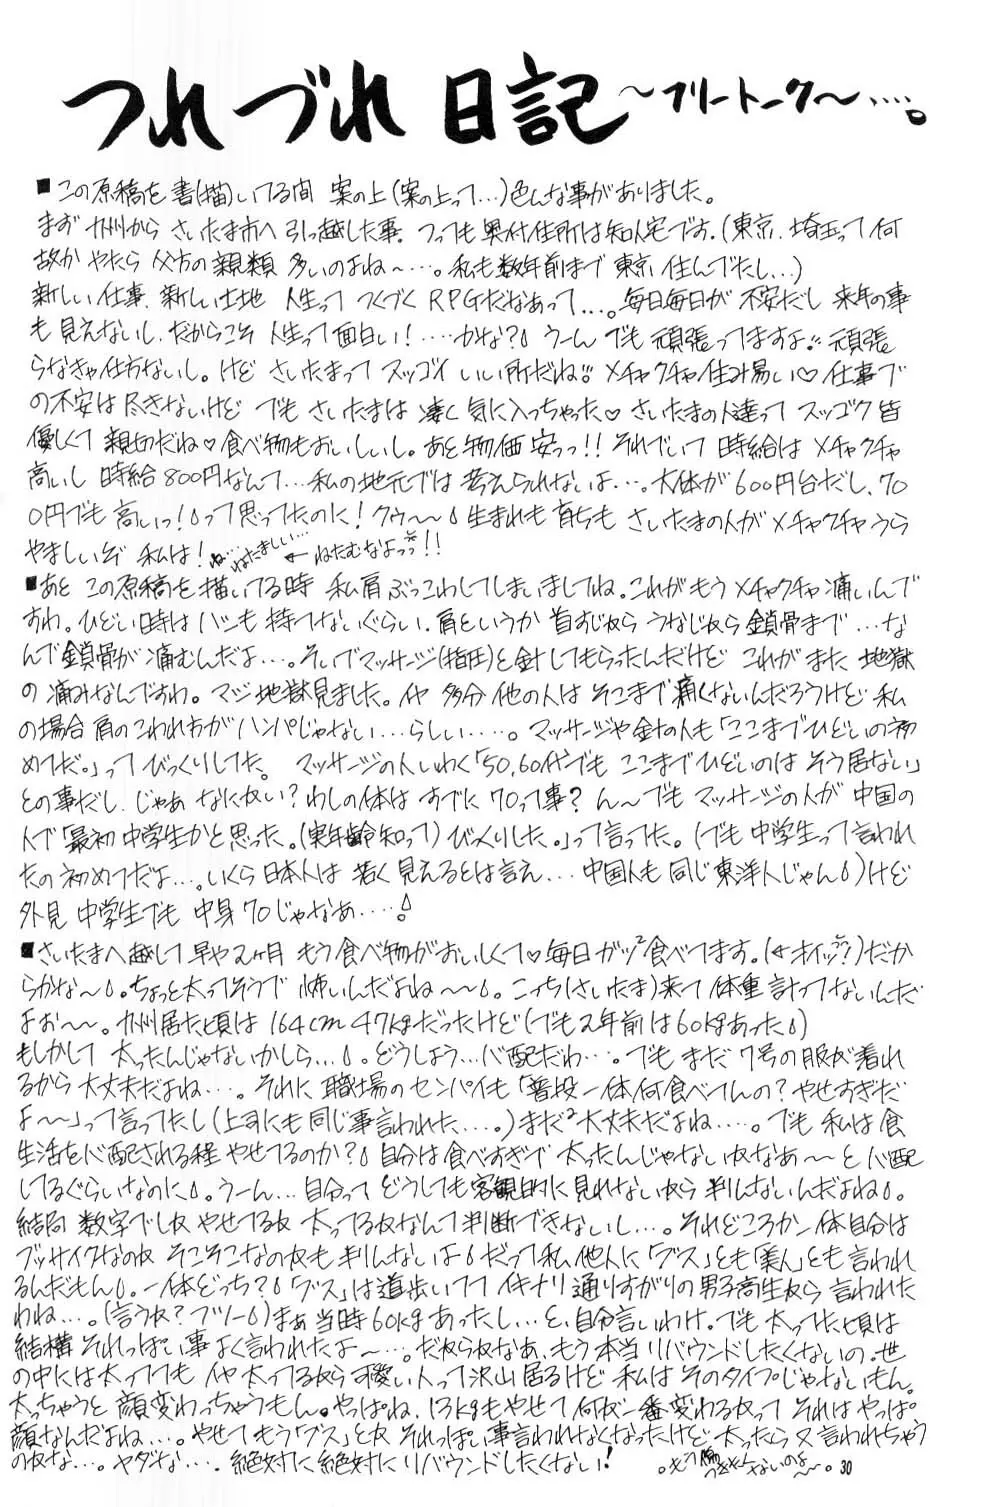 つれづれ日記 ～フリートーク～……。
■この原稿を書(描)いてる間 案の上(案の上って…)色んな事がありました。
まず 九州から さいたま市へ 引っ越した事。つっても奥付住所は知人宅です。(東京、埼玉って何
故か やたら 父方の親類 多いのよね～…。私も数年前まで 東京 住んでたし…)
新しい仕事、新しい土地 人生って つくづく RPGだなあって…。毎日毎日が 不安だし 来年の事
も 見えないし、だからこそ 人生って面白い！……かな？ うーん でも 頑張ってますよ!! 頑張
らなきゃ仕方ないし。けど さいたまって スッゴイ いい所だね!! メチャクチャ住み易い♡ 仕事で
の不安は 尽きないけど でも さいたまは 凄く 気に入っちゃった♡ さいたまの人達って スッゴク 皆
優しくて 親切だね♡ 食べ物もおいしいし。あと 物価 安っっ!! それでいて 時給は メチャクチャ
高いし 時給800円なんて…私の地元では 考えられないよ…。大体が 600円台だし、70
0円でも 高いっ！って思ってたのに！クゥ～～ 生まれも 育ちも さいたまの人が メチャクチャ うら
やましいぞ 私は！ ね…ねたましい… ← ねたむなよっっ!!
■あと この原稿を 描いてる時 私 肩 ぶっこわしてしまいましてね。これがもう メチャクチャ 痛いんで
すわ。ひどい時は ハシも 持てないぐらい、肩というか 首すじから うなじから 鎖骨まで…な
んで 鎖骨が 痛むんだよ…。そいでマッサージ(指圧)と 針 してもらったんだけど これがまた 地獄
の 痛みなんですわ。マジ 地獄見ました。イヤ 多分 他の人は そこまで 痛くないんだろうけど 私
の場合 肩の こわれ方が ハンパじゃない…らしい……。マッサージや 針の人も「ここまでひどいの初
めてだ。」って びっくりしてた。マッサージの人いわく「50、60代でも ここまでひどいのは そう居ない」
との事だし、じゃあ なにかい？ わしの体は すでに 70って事？ ん～でも マッサージの人が 中国の
人で「最初 中学生かと思った。(実年齢知って) びっくりした。」って 言ってた。(でも 中学生って 言われ
たの初めてだよ…。いくら 日本人は 若く 見えるとは言え… 中国人も 同じ 東洋人じゃん)けど
外見 中学生でも 中身 70じゃなあ……
■さいたまへ越して 早や2ヶ月 もう 食べ物が おいしくて♡ 毎日 ガツ²食べてます。(←オイッ？)だか
らかな～。ちょっと太ってそうで 怖いんだよね～～。こっち(さいたま)来て 体重 計ってないんだ
よぉ～～。九州居た頃は 164cm 47kgだったけど(でも 2年前は60kgあった)
もしかして 太ったんじゃないかしら…。どうしよう…心配だわ…。でも まだ 7号の服が 着れ
るから 大丈夫だよね…。それに 職場の センパイも「普段 一体何食べてんの？やせすぎだ
よ～～」って言ってたし(上司にも 同じ事言われた……。)まだ²大丈夫だよね……。でも 私は食
生活を心配される程 やせてるのか？ 自分は食べすぎで 太ったんじゃないかなあ～～と 心配
してるぐらいなのに。うーん…自分って どうしても 客観的に 見れないから 判んないんだよね。
結局 数字でしか やせてるか 太ってるかなんて 判断できないし…。それどころか 一体自分は
ブッサイクなのか そこそこなのかも 判んないよ だって 私 他人に「ブス」とも「美人」とも 言われ
るんだもん。一体どっち？「ブス」は 道歩いてて イキナリ 通りすがりの 男子高生から 言われた
わね…。(言うか？フツー)まぁ 当時 60kgあったし…と、自分言いわけ。でも 太ってた頃は
結構 それっぽい事 よく言われたよ～…。だからかなあ、もう 本当 リバウンドしたくないの。世
の中には 太ってても イヤ 太ってるから 可愛い人って 沢山 居るけど 私は そのタイプじゃないもん。
太っちゃうと 顔 変わっちゃうもん。やっぱね、13kgもやせて 何が一番変わるかって それは やっぱ
顔なんだよね…。やせて もう「ブス」とか それっぽい事言われなくなったけど 太ったら 又 言われちゃう
のかな…。ヤダな…。絶対に 絶対に リバウンドしたくない！
30